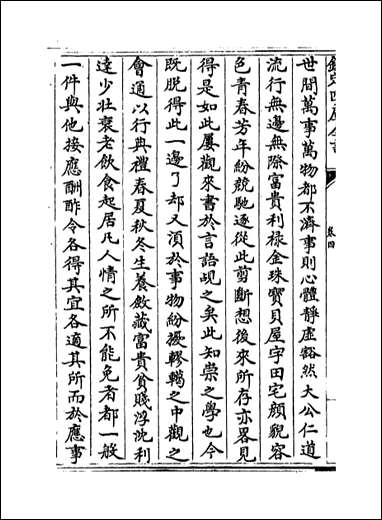 欽定四庫全書
卷四
世間萬事萬物都不濟事則心體靜虛豁然大公仁道
流行無邊無際富貴利祿金珠寶貝屋宇田宅顔貌容
色青春芳年紛競馳逐從此剪斷想後來所存亦畧見
得是如此屢觀來書於言語覘之矣此知崇之學也今
既脱得此一邊了却又須於事物紛擾轇轕之中觀之
會通以行典禮春夏秋冬生養斂藏富貴貧賤浮沈利
達少壯衰老飲食起居凡人情之所不能免者都一般
一件與他接應酬酢令各得其宜各適其所而於應事